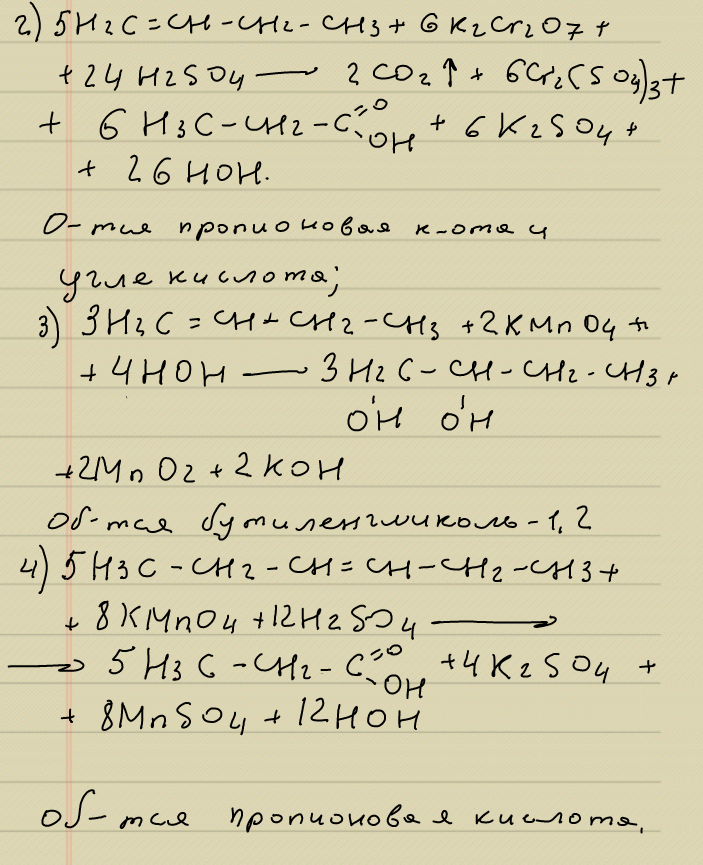 2) 5H2C=CH-CH2-CH3 + 6K2Cr2O7 +
+ 24 H2SO4 — 2CO2↑ + 6Cr2(SO4)3 +
+ 6 H3C-CH2-C=O OH + 6 K2SO4 +
+ 26 HOH.
О-тся пропионовая к-ота и
угле кислота;
3) 3H2C=CH-CH2-CH3 + 2KMnO4 +
+ 4HOH — 3H2C-CH-CH2-CH3 +
OH OH
+2MnO2 + 2KOH
Об-тся бутиленгликоль-1,2
4) 5H3C-CH2-CH=CH-CH2-CH3 +
+ 8KMnO4 + 12H2SO4 →
→ 5H3C-CH2-C=O OH + 4K2SO4 +
+ 8MnSO4 + 12HOH
об-тся пропионовая кислота.